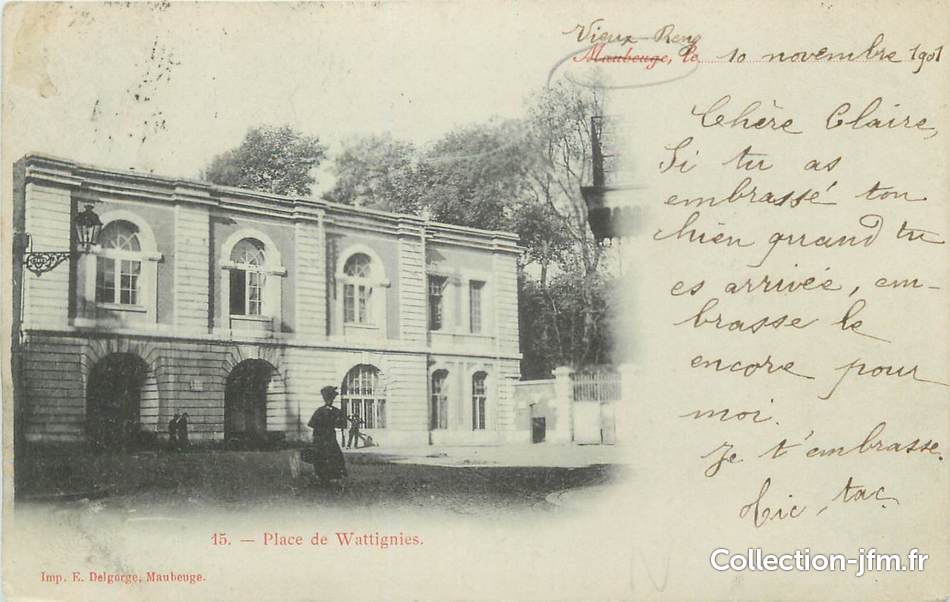 Vieux-Reng
Maubeuge, le 10 novembre 1901
Chère Claire,
Si tu as
embrassé ton
bien quand tu
es arrivée, em-
brasse le
encore pour
moi.
Je t'embrasse.
tac
15. — Place de Wattignies.
Imp. E. Delgorge, Maubeuge.
Collection-jfm.fr